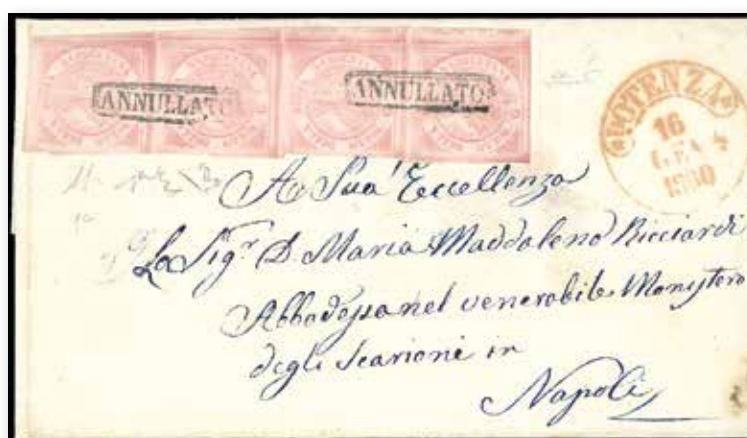 ANNULLATO ANNULLATO
POTENZA
16
GEN
1860
A Sua Eccellenza
La Sig.r D. Maria Maddalena Ricciardi
Abbadessa nel venerabile Monistero
degli Scarioni in
Napoli